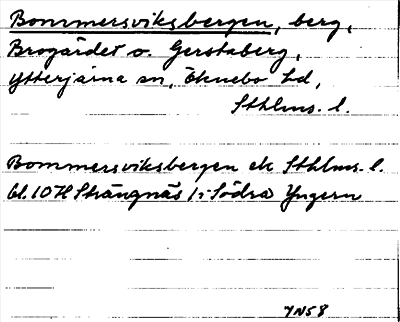 Bommersviksbergen, berg,
Brogärdet o. Gerstaberg,
Ytterjärna sn, Öknebo hd,
Sthlms. l.
Bommersviksbergen ek Sthlms. l.
bl. 10 H Strängnäs /: Södra Yngern
YN58